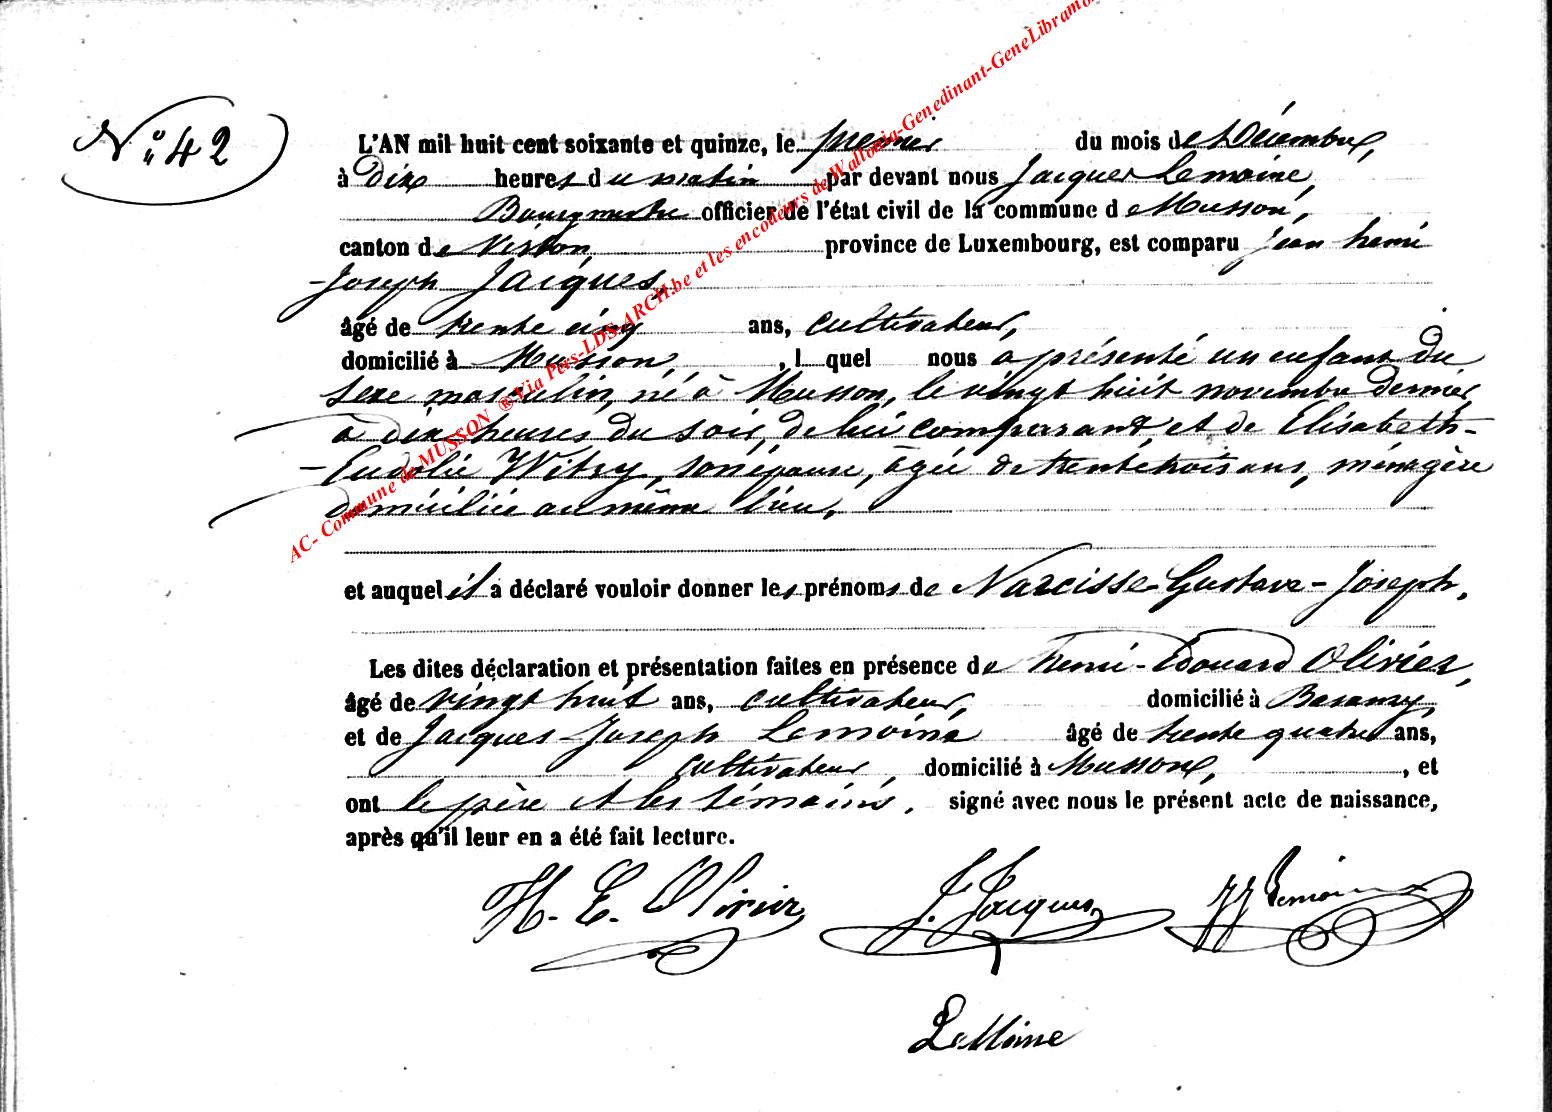 N° 42
L'AN mil huit cent soixante et quinze, le premier du mois de Décembre,
à dix heures du matin par devant nous Jacques Lemoine,
Bourgmestre officier de l'état civil de la commune de Musson,
canton de Virton, province de Luxembourg, est comparu Jean henri
-Joseph Jacques,
âgé de trente cinq ans, cultivateur,
domicilié à Musson, , l quel nous a présenté un enfant du
sexe masculin, né à Musson, le vingt huit novembre dernier
à dix heures du soir, de lui comparant, et de Elisabeth-
-Eudolie Witry, son épouse, âgée de trente trois ans, ménagère
domiciliée au même lieu,
et auquel il a déclaré vouloir donner les prénoms de Narcisse-Gustave-Joseph,
Les dites déclaration et présentation faites en présence de henri-Edouard Olivier,
âgé de vingt huit ans, cultivateur, domicilié à Baranzy,
et de Jacques-Joseph Lemoine âgé de trente quatre ans,
cultivateur, domicilié à Musson, , et
ont le père et les témoins, signé avec nous le présent acte de naissance,
après qu'il leur en a été fait lecture.
H. E. Olivier J. Jacques JJ Lemoine
LeMoine
AC- Commune de MUSSON ® Via Pers-LDS-ARCH.be et les encodeurs de Wallonia-Genedinant-GeneLibramo